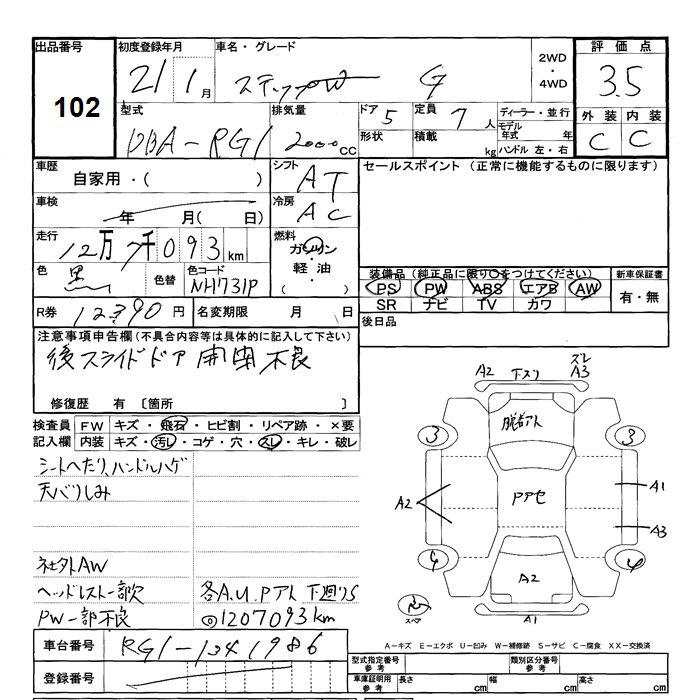 出品番号 初度登録年月 車名・グレード 2WD・4WD 評価点
102 21 1月 ステップW G 3.5
型式 排気量 ドア 5 定員 7人 ディーラー・並行 外装 内装
DBA-RG1 2000cc 形状 積載 kg モデル年式 年 ハンドル 左・右 C C
車歴 自家用・( ) シフト AT セールスポイント (正常に機能するものに限ります)
車検 年 月( 日) 冷房 AC
走行 12万7千093km 燃料 ガソリン・軽油・( )
色 黒 色替 色コード NH731P 装備品(純正品に限り○をつけてください) 新車保証書
PS PW ABS エアB AW 有・無
SR ナビ TV カワ
R券 12390円 名変期限 月 日 後日品
注意事項申告欄(不具合内容等は具体的に記入して下さい)
後スライドドア 開閉不良
修復歴 有 〔箇所 〕
検査員 FW キズ・飛石・ヒビ割・リペア跡・×要
記入欄 内装 キズ・汚レ・コゲ・穴・スレ・キレ・破レ
シートへたり、ハンドルハゲ
天バリしみ
社外AW
ヘッドレスト一部欠 各A.U.Pアト 下廻りS
PW一部不良 ◎1207093km
A2 下スリ ズレ A3
脱着アト
3 3
A2 PアセA1
A3
4 4
A2
スペア A1
車台番号 RG1-1041986
登録番号
A-キズ E-エクボ U-凹み W-補修跡 S-サビ C-腐食 XX-交換済
型式指定番号 参考 類別区分番号 参考
車庫証明用 参考 長さ cm 幅 cm 高さ cm